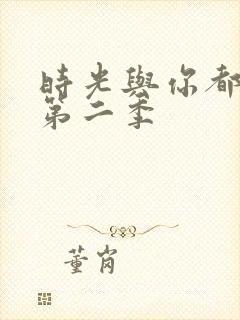 時光與你都
第二季
董崗